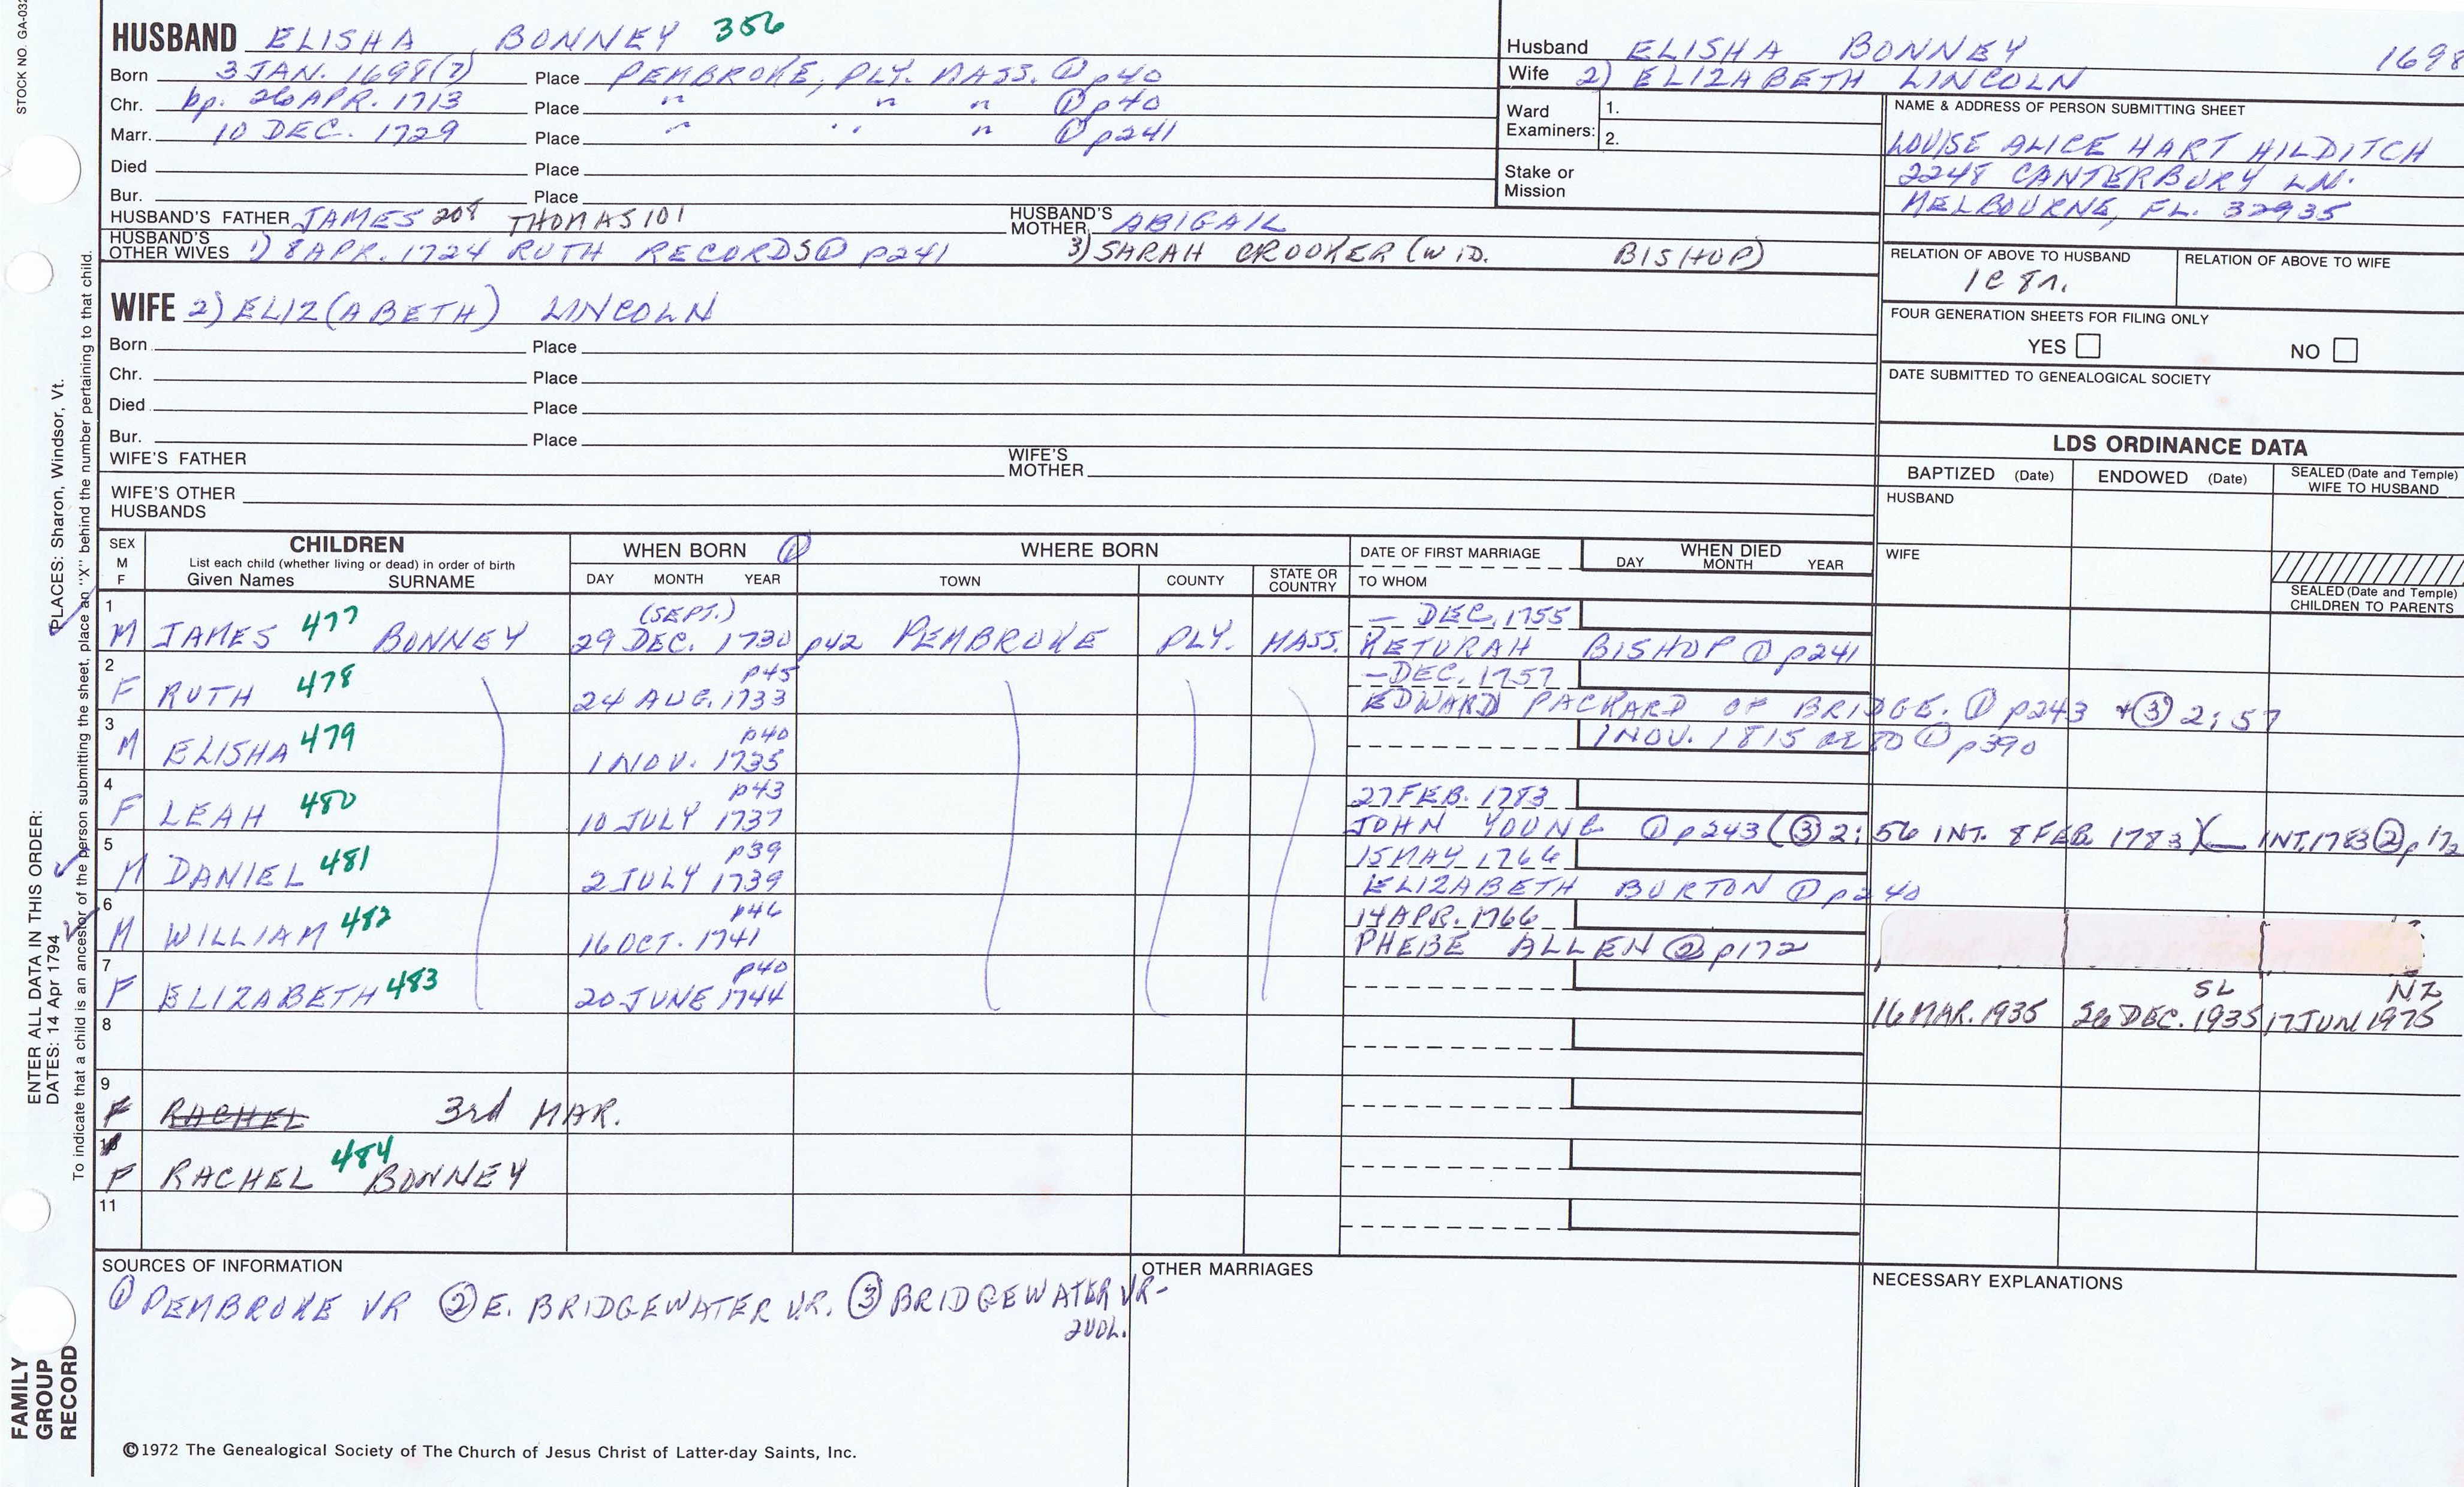 STOCK NO. GA-032
HUSBAND ELISHA BONNEY 356
Born 3 JAN. 1698(7) Place PEMBROKE, PLY. MASS. ① p40
Chr. bp. 26 APR. 1713 Place " " " ① p40
Marr. 10 DEC. 1729 Place " " " ① p241
Died Place
Bur. Place
HUSBAND'S FATHER JAMES 208 THOMAS 101 HUSBAND'S MOTHER ABIGAIL
HUSBAND'S OTHER WIVES 1) 8 APR. 1724 RUTH RECORDS ① p241 3) SARAH CROOKER (WID. BISHOP)
WIFE 2) ELIZ(ABETH) LINCOLN
Born Place
Chr. Place
Died Place
Bur. Place
WIFE'S FATHER WIFE'S MOTHER
WIFE'S OTHER HUSBANDS
Husband ELISHA BONNEY 1698
Wife 2) ELIZABETH LINCOLN
Ward Examiners: 1.
2.
Stake or Mission
NAME & ADDRESS OF PERSON SUBMITTING SHEET
LOUISE ALICE HART HILDITCH
2248 CANTERBURY LN.
MELBOURNE, FL. 32935
RELATION OF ABOVE TO HUSBAND RELATION OF ABOVE TO WIFE
1C 8r.
FOUR GENERATION SHEETS FOR FILING ONLY
YES NO
DATE SUBMITTED TO GENEALOGICAL SOCIETY
LDS ORDINANCE DATA
BAPTIZED (Date) ENDOWED (Date) SEALED (Date and Temple) WIFE TO HUSBAND
HUSBAND
WIFE
SEALED (Date and Temple) CHILDREN TO PARENTS
SEX M F CHILDREN WHEN BORN ① WHERE BORN DATE OF FIRST MARRIAGE WHEN DIED
List each child (whether living or dead) in order of birth
Given Names SURNAME DAY MONTH YEAR TOWN COUNTY STATE OR COUNTRY TO WHOM DAY MONTH YEAR
1 (SEPT.) — DEC. 1755
M JAMES 477 BONNEY 29 DEC. 1730 p42 PEMBROKE PLY. MASS. KETURAH BISHOP ① p241
2 p45 — DEC. 1757
F RUTH 478 24 AUG. 1733 EDWARD PACKARD OF BRIDGE. ① p243 + ③ 2:57
3 p40 1 NOV. 1815 ae 80 ① p390
M ELISHA 479 1 NOV. 1735
4 p43 27 FEB. 1783
F LEAH 480 10 JULY 1737 JOHN YOUNG ① p243 (③ 2:56 INT. 8 FEB. 1783)(— INT. 1783 ② p172
5 p39 15 MAY 1766
M DANIEL 481 2 JULY 1739 ELIZABETH BURTON ① p240
6 p46 14 APR. 1766
M WILLIAM 482 16 OCT. 1741 PHEBE ALLEN ② p172
7 p40 SL NZ
F ELIZABETH 483 20 JUNE 1744 16 MAR. 1935 26 DEC. 1935 17 JUN 1975
8
9
F RACHEL 3rd MAR.
10
F RACHEL 484 BONNEY
11
SOURCES OF INFORMATION OTHER MARRIAGES NECESSARY EXPLANATIONS
① PEMBROKE VR ② E. BRIDGEWATER V.R. ③ BRIDGEWATER VR-
2 VOL.
©1972 The Genealogical Society of The Church of Jesus Christ of Latter-day Saints, Inc.
FAMILY GROUP RECORD
ENTER ALL DATA IN THIS ORDER:
DATES: 14 Apr 1794 PLACES: Sharon, Windsor, Vt.
To indicate that a child is an ancestor of the person submitting the sheet, place an "X" behind the number pertaining to that child.